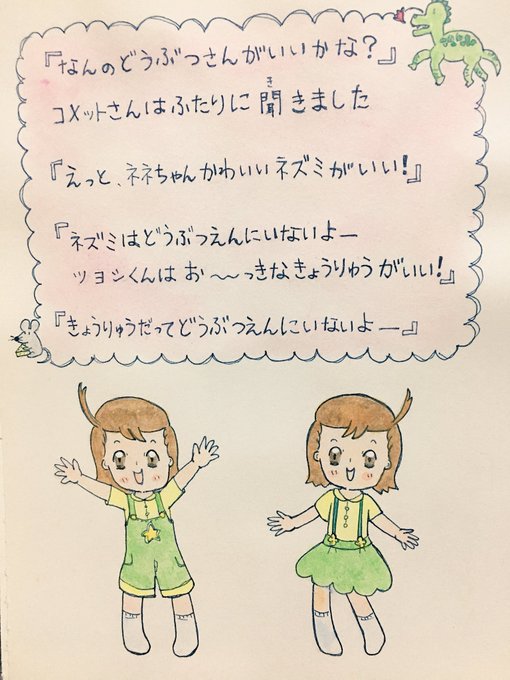 『なんのどうぶつさんがいいかな?』
コメットさんはふたりに聞きました
『えっと、ネネちゃんかわいいネズミがいい!』
『ネズミはどうぶつえんにいないよー
ツヨシくんはお〜〜っきなきょうりゅうがいい!』
『きょうりゅうだってどうぶつえんにいないよー』